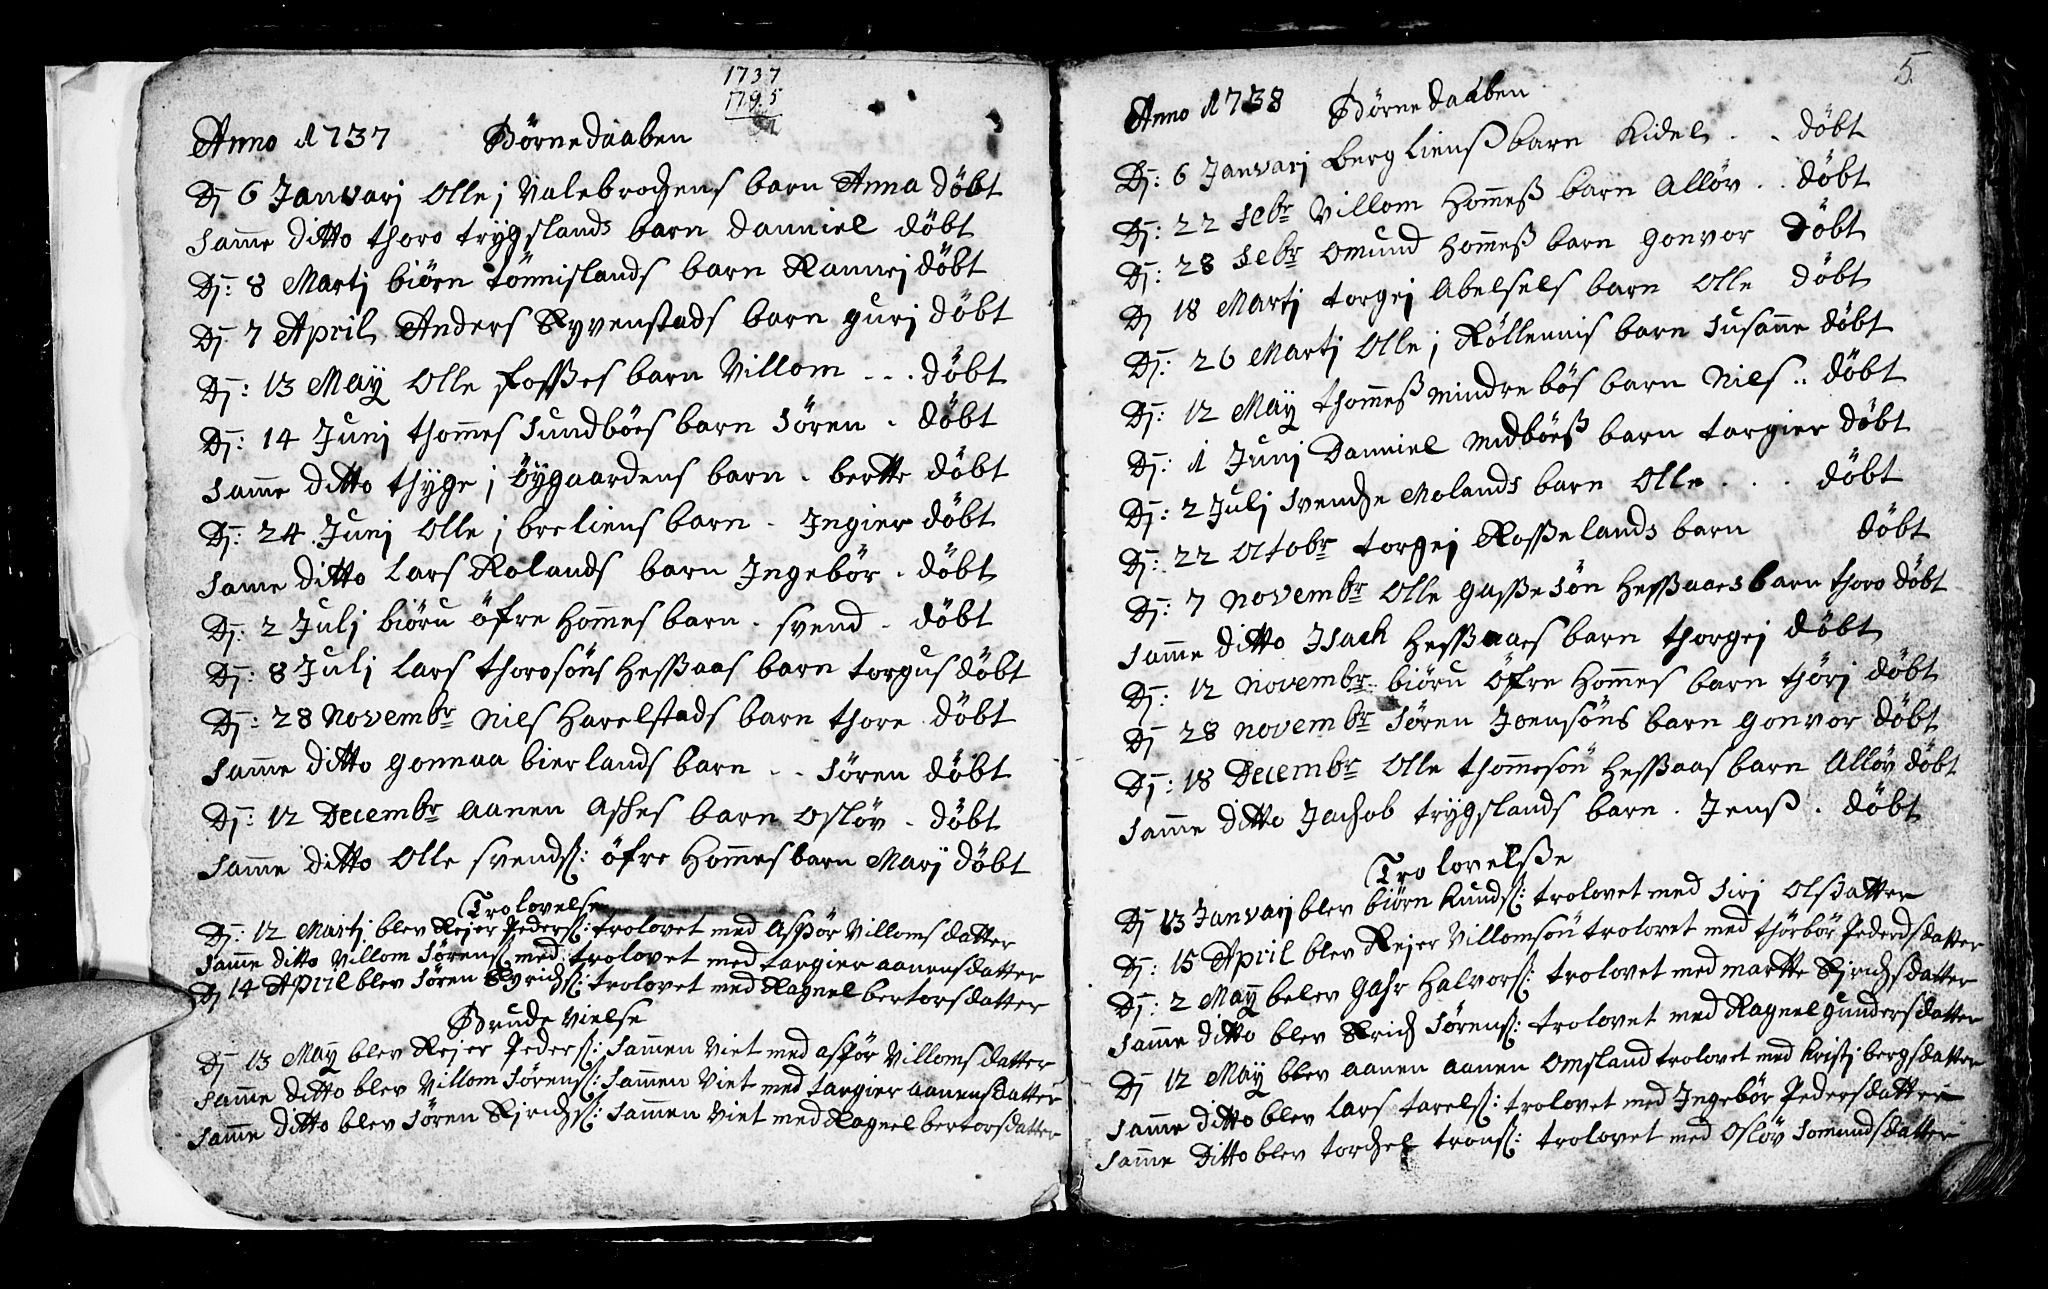 1737
1795
Anno 1737 Börnedaaben
Dj 6 Janvarj Olle j Valebrochens barn Anna döbt
Samme ditto thoro trÿgslands barn Danniel döbt
Dj: 8 Martj biörn tönnislands barn Rannej döbt
Dj 7 April Anders Ryvenstads barn gurj döbt
Dj: 13 Maÿ Olle fosses barn Villom - - . döbt
Dj: 14 Junj thommes Sundböes barn Sören . döbt
Samme ditto thÿge j Öÿgaardens barn . bertte döbt
Dj: 24 Junj Olle j breliens barn . Ingier döbt
Samme ditto Lars Rolands barn Ingebör . döbt
Dj: 2 Julj biöru öfre Hommes barn . svend . döbt
Dj: 8 Julj Lars thorosöns Hessaas barn torgus döbt
Dj: 28 Novembr Niels Harelstads barn thore döbt
Samme ditto gonnaa bierlands barn . . Sören döbt
Dj: 12 Decembr Aanen Askes barn Oslöv . döbt
Samme ditto Olle svends: öfre Hommes barn Marj döbt
Trolovelse
Dj: 12 Martj blev Rejer Peders: trolovet med Aspör Villoms datter
Samme ditto Villom Sörens: med: trolovet med targier aanensdatter
Dj 14 April blev Sören Eyrichs: trolovet med Ragnel bertorsdatter
Brude vielse
Dj 13 Maÿ blev Rejer Peders: Sammen Viet med aspör Villoms datter
Samme ditto blev Villom Sörens: Sammen Viet med targier aanensdatter
Samme ditto blev Sören Ejrichs: Sammen Viet med Ragnel bertorsdatter
5
Anno 1738 Börnedaaben
Dj: 6 Janvarj berg Lienss barn Kidel . . döbt
Dj: 22 Febr Villom Hommess barn Allöv . . döbt
Dj: 28 Febr Omund Hommess barn gonvor döbt
Dj 18 Martj torgej Abelsels barn Olle döbt
Dj: 26 Martj Olle j Röllennis barn Susanne döbt
Dj: 12 Maÿ thommess mindrebös barn Niels . . döbt
Dj: 1 Junj Danniel midböess barn targier döbt
Dj: 2 Julj Svenche Molands barn Olle . . . döbt
Dj: 22 Octobr torgej Rosselands barn döbt
Dj: 7 Novembr Olle gassesön Hessaaes barn thoro döbt
Samme ditto Isach Hessaaes barn thorgej döbt
Dj: 12 Novembr biöru öfre Hommes barn thörj döbt
Dj 28 Novembr Sören Joensöns barn gonvor döbt
Dj: 18 Decembr Olle thommesön Hessaas barn Allöv döbt
Samme ditto Jachob trÿgslands barn . Jenss . döbt
Trolovelsse
Dj 13 Janvarj blev biörn Kunds: trolovet med Sirj Olsdatter
Dj: 15 April blev Rejer Villomsön trolovet med thörbör Pedersdatter
Dj: 2 Maÿ belev gahr Halvors: trolovet med martte Ejrichsdatter
Samme ditto blev Erich Sörens: trolovet med Ragnel gundersdatter
Dj 12 Maÿ blev aanen aanen Omsland trolovet med Kristj bergsdatter
Samme ditto blev Lars tarels: trolovet med Ingebör Pedersdatter
Samme ditto blev torchel trons: trolovet med Oslöv Somundsdatter